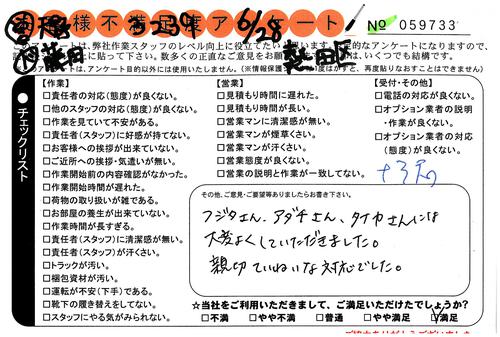 様不満足度アンケート 6/28 № 059733
3239
藤田 熱田区
このアンケートは、弊社作業スタッフのレベル向上に役立てたい
●チェックリスト
【作業】
□責任者の対応(態度)が良くない。
□他のスタッフの対応(態度)が良くない。
□作業を見ていて不安がある。
□責任者(スタッフ)に好感が持てない。
□お客様への挨拶が出来ていない。
□ご近所への挨拶・気遣いが無い。
□作業開始前の内容確認がなかった。
□作業開始時間が遅れた。
□荷物の取り扱いが雑である。
□お部屋の養生が出来ていない。
□作業時間が長すぎる。
□責任者(スタッフ)に清潔感が無い。
□責任者(スタッフ)が汗くさい。
□トラックが汚い。
□梱包資材が汚い。
□運転が不安(下手)である。
□靴下の履き替えをしてない。
□スタッフにやる気がみられない。
【営業】
□見積もり時間に遅れた。
□見積もり時間が長い。
□営業マンに清潔感が無い。
□営業マンが煙草くさい。
□営業マンが汗くさい。
□営業態度が良くない。
□営業の説明と作業が一致してない。
【受付・その他】
□電話の対応が良くない。
□オプション業者の説明
・作業が良くない。
□オプション業者の対応
(態度)が良くない。
その他、ご意見・ご要望等ありましたらお書き下さい。
フジタさん、アダチさん、タイカさんには
大変よくしていただきました。
親切ていねいな対応でした。
☆当社をご利用いただきまして、ご満足いただけたでしょうか?
□不満 □やや不満 □普通 □やや満足 □満足